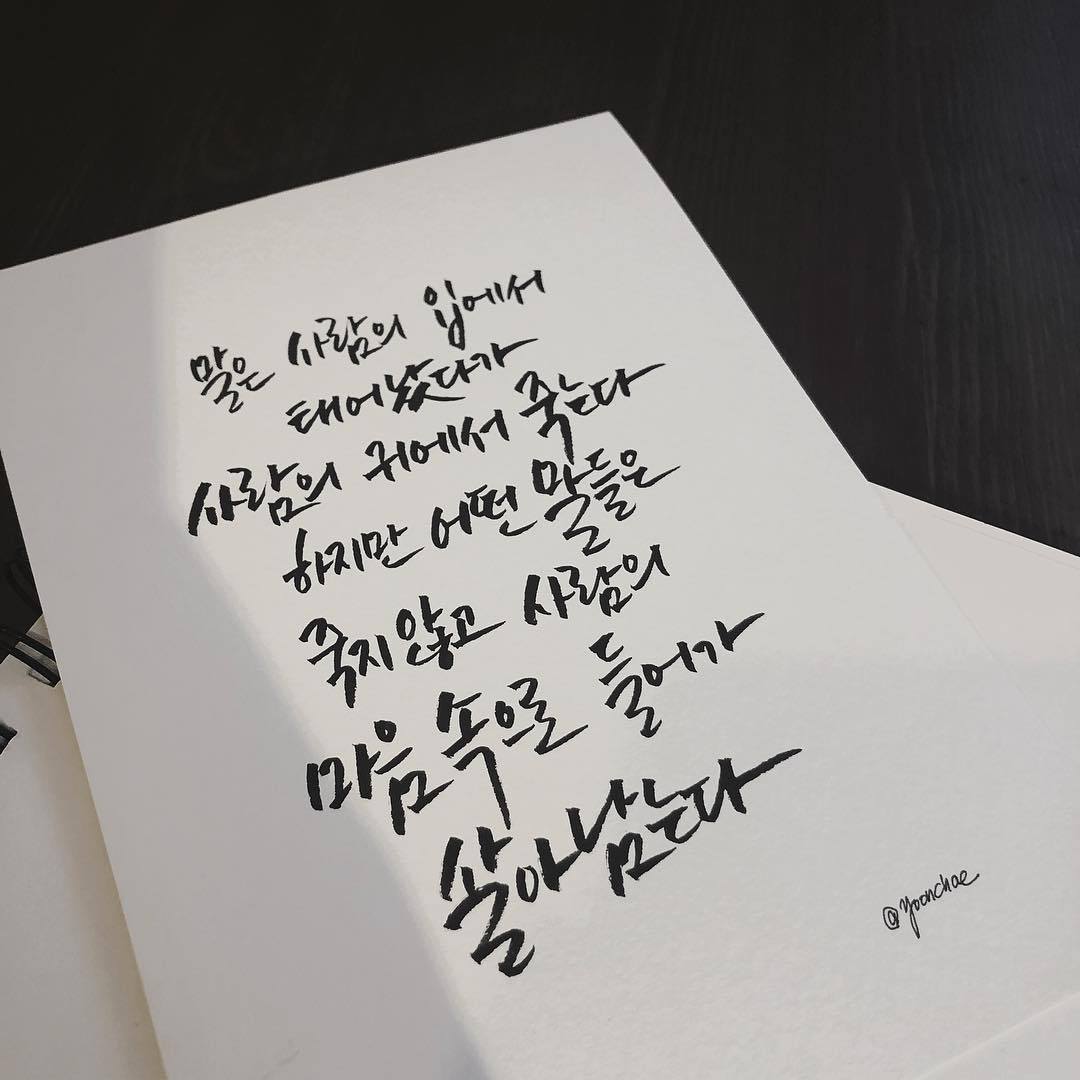 말은 사람의 입에서
태어났다가
사람의 귀에서 죽는다
하지만 어떤 말들은
죽지 않고 사람의
마음 속으로 들어가
살아남는다
@yoonchae